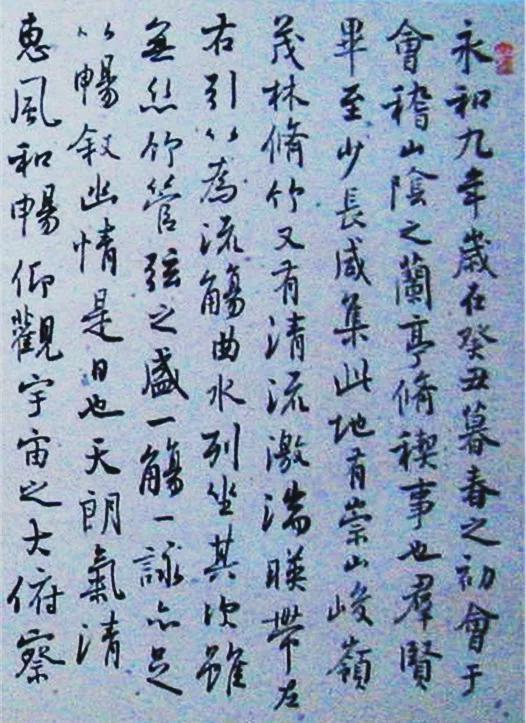 永和九年歲在癸丑暮春之初會于
會稽山陰之蘭亭脩禊事也羣賢
畢至少長咸集此地有崇山峻嶺
茂林脩竹又有清流激湍暎帶左
右引以為流觴曲水列坐其次雖
無絲竹管弦之盛一觴一詠亦足
以暢敘幽情是日也天朗氣清
惠風和暢仰觀宇宙之大俯察